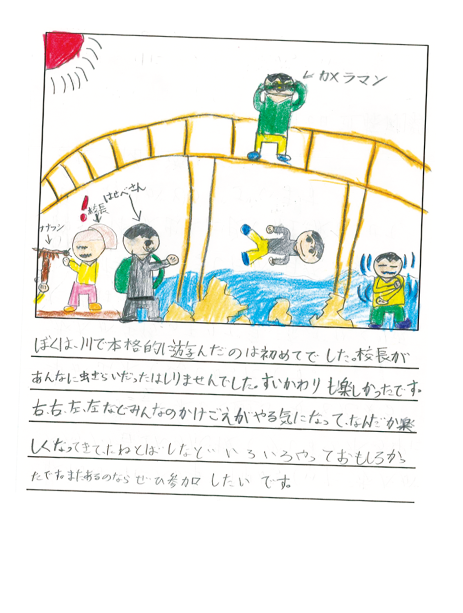 カメラマン
はせべさん
校長
ぼくは、川で本格的に遊んだのは初めてでした。校長が
あんなに虫きらいだったはしりませんでした。すいかわりも楽しかったです。
右、右、左、左などみんなのかけごえがやる気になって、なんだか楽
しくなってきて、たねとばしなど いろいろやっておもしろかっ
たです。またあるのなら ぜひ参加したいです。